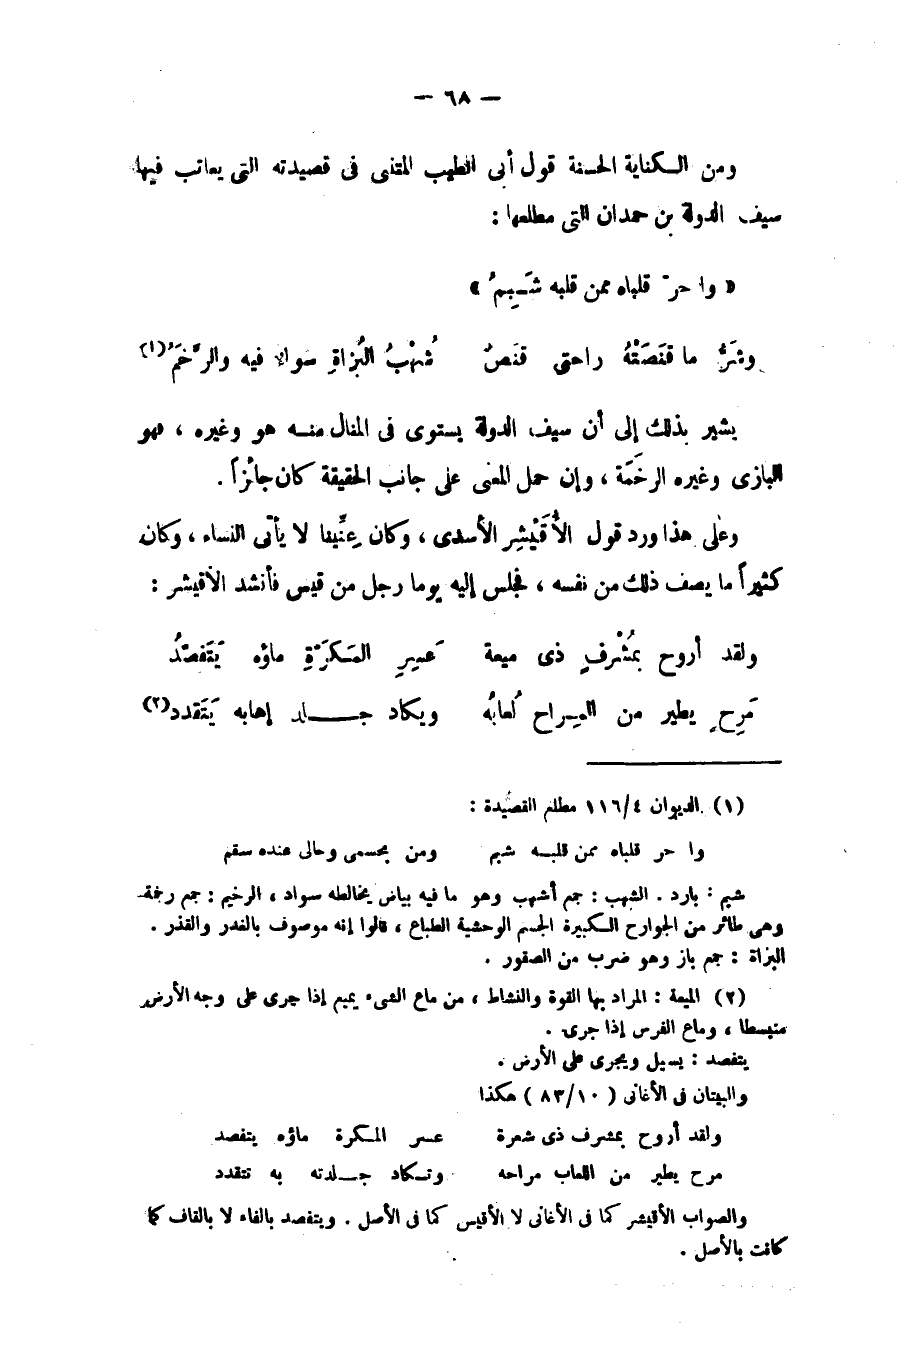 — ٦٨ —
ومن الكناية الحسنة قول أبى الطيب المتنبى فى قصيدته التى يعاتب فيها
سيف الدولة بن حمدان التى مطلعها :
« وا حرّ قلباه ممن قلبه شَبِمُ »
وشَرُّ ما قنَصَتْهُ راحتى قنَصٌ شُهْبُ البُزاةِ سواءٌ فيه والرَّخَمُ (١)
يشير بذلك إلى أن سيف الدولة يستوى فى المنال منه هو وغيره ، فهو
البازى وغيره الرخَمَة ، وإن حمل المعنى على جانب الحقيقة كان جائزاً .
وعلى هذا ورد قول الأُقَيْشِر الأسدى ، وكان عِنِّينا لا يأتى النساء ، وكان
كثيراً ما يصف ذلك من نفسه ، فجلس إليه يوما رجل من قيس فأنشد الأقيشر :
ولقد أروح بمُشْرفٍ ذى ميعة عَسِرِ المَكَرَّةِ ماؤه يَتَفصّدُ
مَرِحٍ يطير من المِراح لُعابُه ويكاد جلد إهابه يَتَقدد (٢)
(١) الديوان ٤/١١٦ مطلع القصيدة :
وا حر قلباه ممن قلبه شبم ومن بجسمى وحالى عنده سقم
شبم : بارد . الشهب : جمع أشهب وهو ما فيه بياض يخالطه سواد ، الرخيم : جمع رخمة
وهى طائر من الجوارح الكبيرة الجسم الوحشية الطباع ، قالوا إنه موصوف بالغدر والقذر .
البزاة : جمع باز وهو ضرب من الصقور .
(٢) الميعة : المراد بها القوة والنشاط ، من ماع الشىء يميع إذا جرى على وجه الأرض
منبسطا ، وماع الفرس إذا جرى .
يتفصد : يسيل ويجرى على الأرض .
والبيتان فى الأغانى ( ١٠/٨٣ ) هكذا
ولقد أروح بمشرف ذى شعرة عسر المكرة ماؤه يتفصد
مرح يطير من اللعاب مراحه وتكاد جلدته به تتقدد
والصواب الأقيشر كما فى الأغانى لا الأقيس كما فى الأصل . ويتفصد بالفاء لا بالقاف كما
كانت بالأصل .